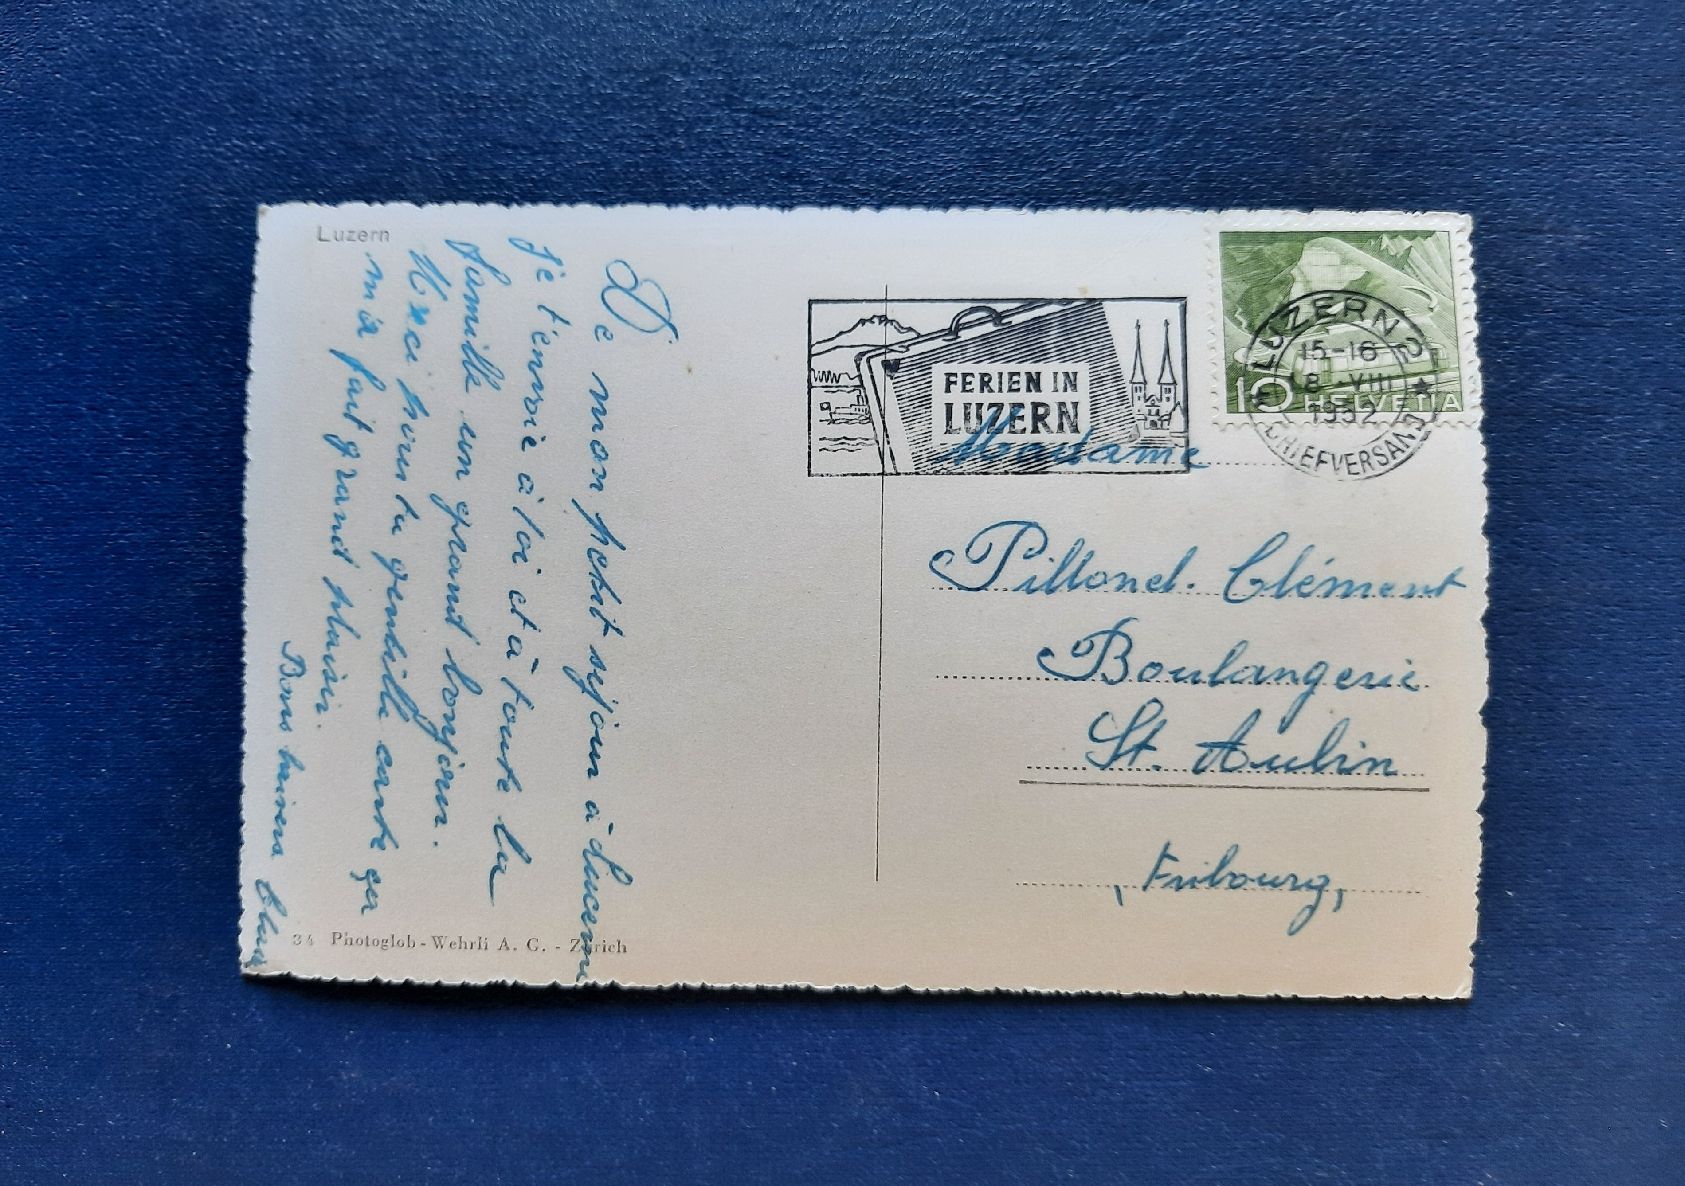 Luzern
De mon petit séjour à Lucerne
je t'envoie à toi et à toute la
famille un grand bonjour.
Merci pour ta gentille carte qui
m'a fait grand plaisir.
Bons baisers
34 Photoglob-Wehrli A. G. - Zürich
FERIEN IN
LUZERN
LUZERN 2
15-16
8 VIII
1952
BRIEFVERSAND
10 HELVETIA
Madame
Pillonel. Clément
Boulangerie
St. Aubin
Fribourg